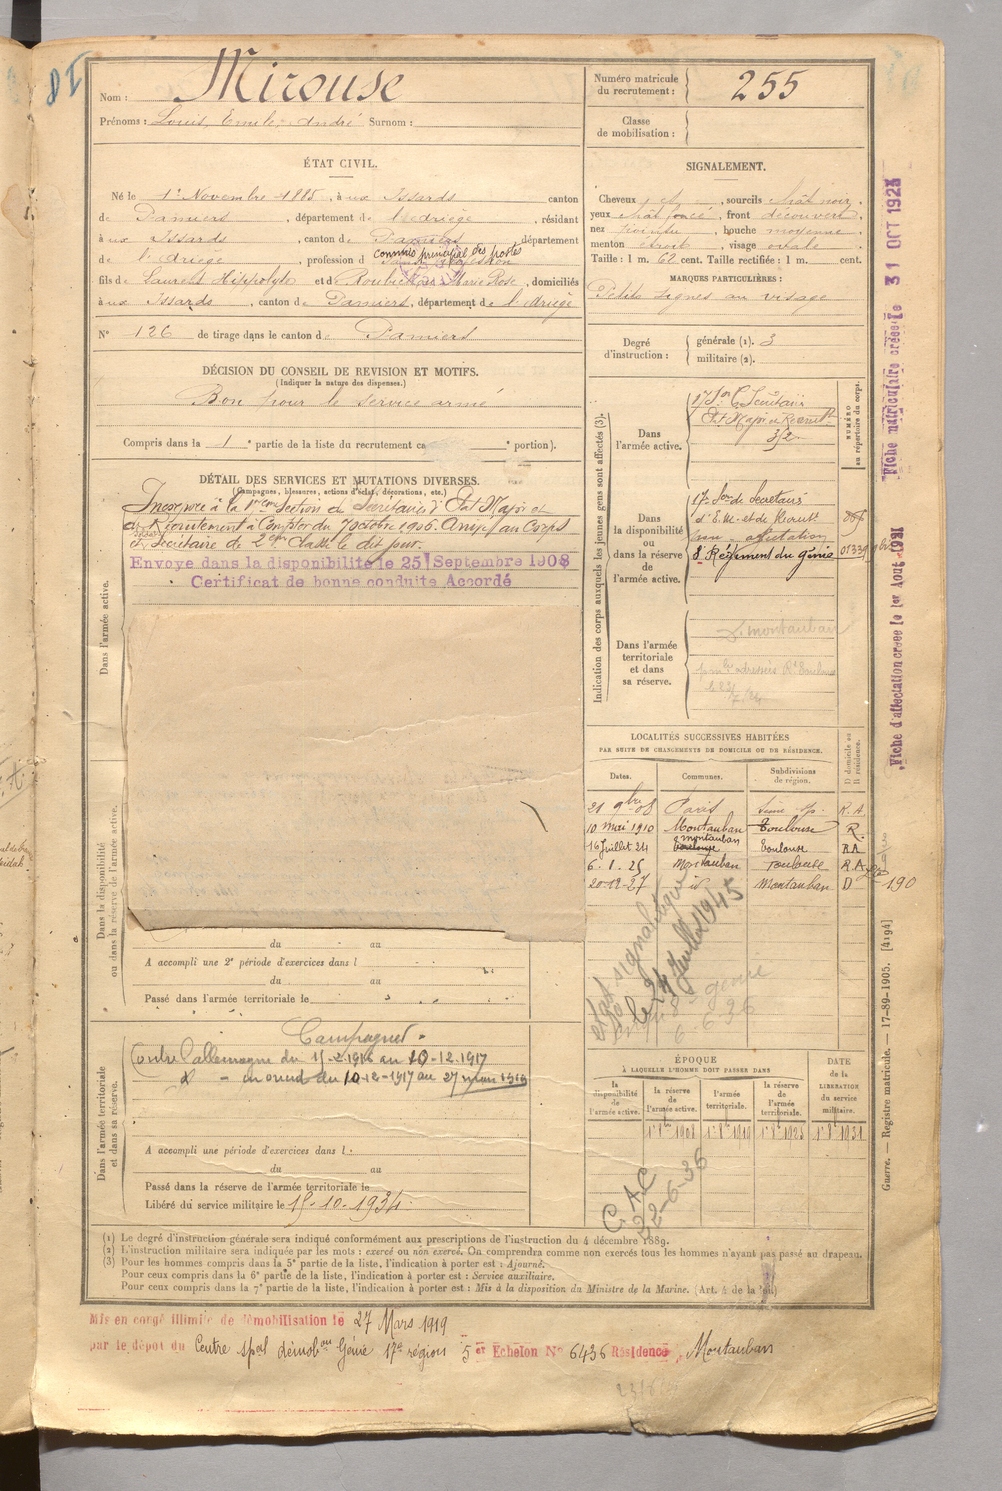 18
Nom : Mirouse
Prénoms : Louis, Emile, André Surnom :
Numéro matricule du recrutement : 255
Classe de mobilisation :
ÉTAT CIVIL.
Né le 1er Novembre 1885, à ux Issards canton
de Pamiers, département de l'Ariège, résidant
à ux Issards, canton de Pamiers département
de l'Ariège, profession d commis principal des postes
fils de Laurent Hippolyte et de Marie Rose, domiciliés
à ux Issards, canton de Pamiers, département de l'Ariège
N° 126 de tirage dans le canton de Pamiers
SIGNALEMENT.
Cheveux , sourcils chât noir,
yeux chât foncé, front découvert,
nez pointu, bouche moyenne,
menton étroit, visage ovale.
Taille : 1 m. 62 cent. Taille rectifiée : 1 m. cent.
MARQUES PARTICULIÈRES :
Petits signes au visage
Degré d'instruction : générale (1). 3
militaire (2).
DÉCISION DU CONSEIL DE REVISION ET MOTIFS.
(Indiquer la nature des dispenses.)
Bon pour le service armé
Compris dans la 1e partie de la liste du recrutement ca e portion).
DÉTAIL DES SERVICES ET MUTATIONS DIVERSES.
(Campagnes, blessures, actions d'éclat, décorations, etc.)
Incorporé à la 17ème Section de Secrétaires d'Etat Major et
du Recrutement à compter du 7 octobre 1906. Arrivé au Corps
Secrétaire de 2ème classe le dit jour.
Envoyé dans la disponibilité le 25 Septembre 1908
Certificat de bonne conduite Accordé
Dans l'armée active.
Dans la disponibilité ou dans la réserve de l'armée active.
du au
A accompli une 2e période d'exercices dans l
du au
Passé dans l'armée territoriale le
Dans l'armée territoriale et dans sa réserve.
Campagnes
Contre l'allemagne du 15-2-1916 au 10-12-1917
d° - en orient du 10-12-1917 au 27 mars 1919
A accompli une période d'exercices dans l
du au
Passé dans la réserve de l'armée territoriale le
Libéré du service militaire le 15-10-1934
Indication des corps auxquels les jeunes gens sont affectés (3).
NUMÉRO au répertoire du corps.
Dans l'armée active.
17e Son Secrétaires
Etat Major et Recrutt
3/2
Dans la disponibilité ou dans la réserve de l'armée active.
17e Son de Secrétaires
d'E.M. et de Recrutt
sans affectation
8e Régiment du génie 01339
Dans l'armée territoriale et dans sa réserve.
Montauban
LOCALITÉS SUCCESSIVES HABITÉES
PAR SUITE DE CHANGEMENTS DE DOMICILE OU DE RÉSIDENCE.
Dates. Communes. Subdivisions de région. D domicile ou R résidence.
21 9bre 08 Paris Seine R. A.
10 mai 1910 Montauban Toulouse R.
16 Juillet 24 montauban Toulouse RA
6-1-25 Montauban Toulouse R.A
20-12-27 id Montauban D
190
état signalétique
le 24 Juillet 1945
8e génie
6.6.36
ÉPOQUE
À LAQUELLE L'HOMME DOIT PASSER DANS
la disponibilité de l'armée active. la réserve de l'armée active. l'armée territoriale. la réserve de l'armée territoriale. DATE de la LIBÉRATION du service militaire.
CAC
22-6-36
(1) Le degré d'instruction générale sera indiqué conformément aux prescriptions de l'instruction du 4 décembre 1889.
(2) L'instruction militaire sera indiquée par les mots : exercé ou non exercé. On comprendra comme non exercés tous les hommes n'ayant pas passé au drapeau.
(3) Pour les hommes compris dans la 5e partie de la liste, l'indication à porter est : Ajourné.
Pour ceux compris dans la 6e partie de la liste, l'indication à porter est : Service auxiliaire.
Pour ceux compris dans la 7e partie de la liste, l'indication à porter est : Mis à la disposition du Ministre de la Marine. (Art. 4 de la loi)
Mis en congé illimité de démobilisation le 27 Mars 1919
par le dépôt du Centre spal démobon Génie 17e région 5e Echelon N° 6436 Résidence, Montauban
Fiche matriculaire créée le 31 OCT 1923
Fiche d'affectation créée le 1er Aout 1931
Guerre. — Registre matricule. — 17-89-1905. [4194]